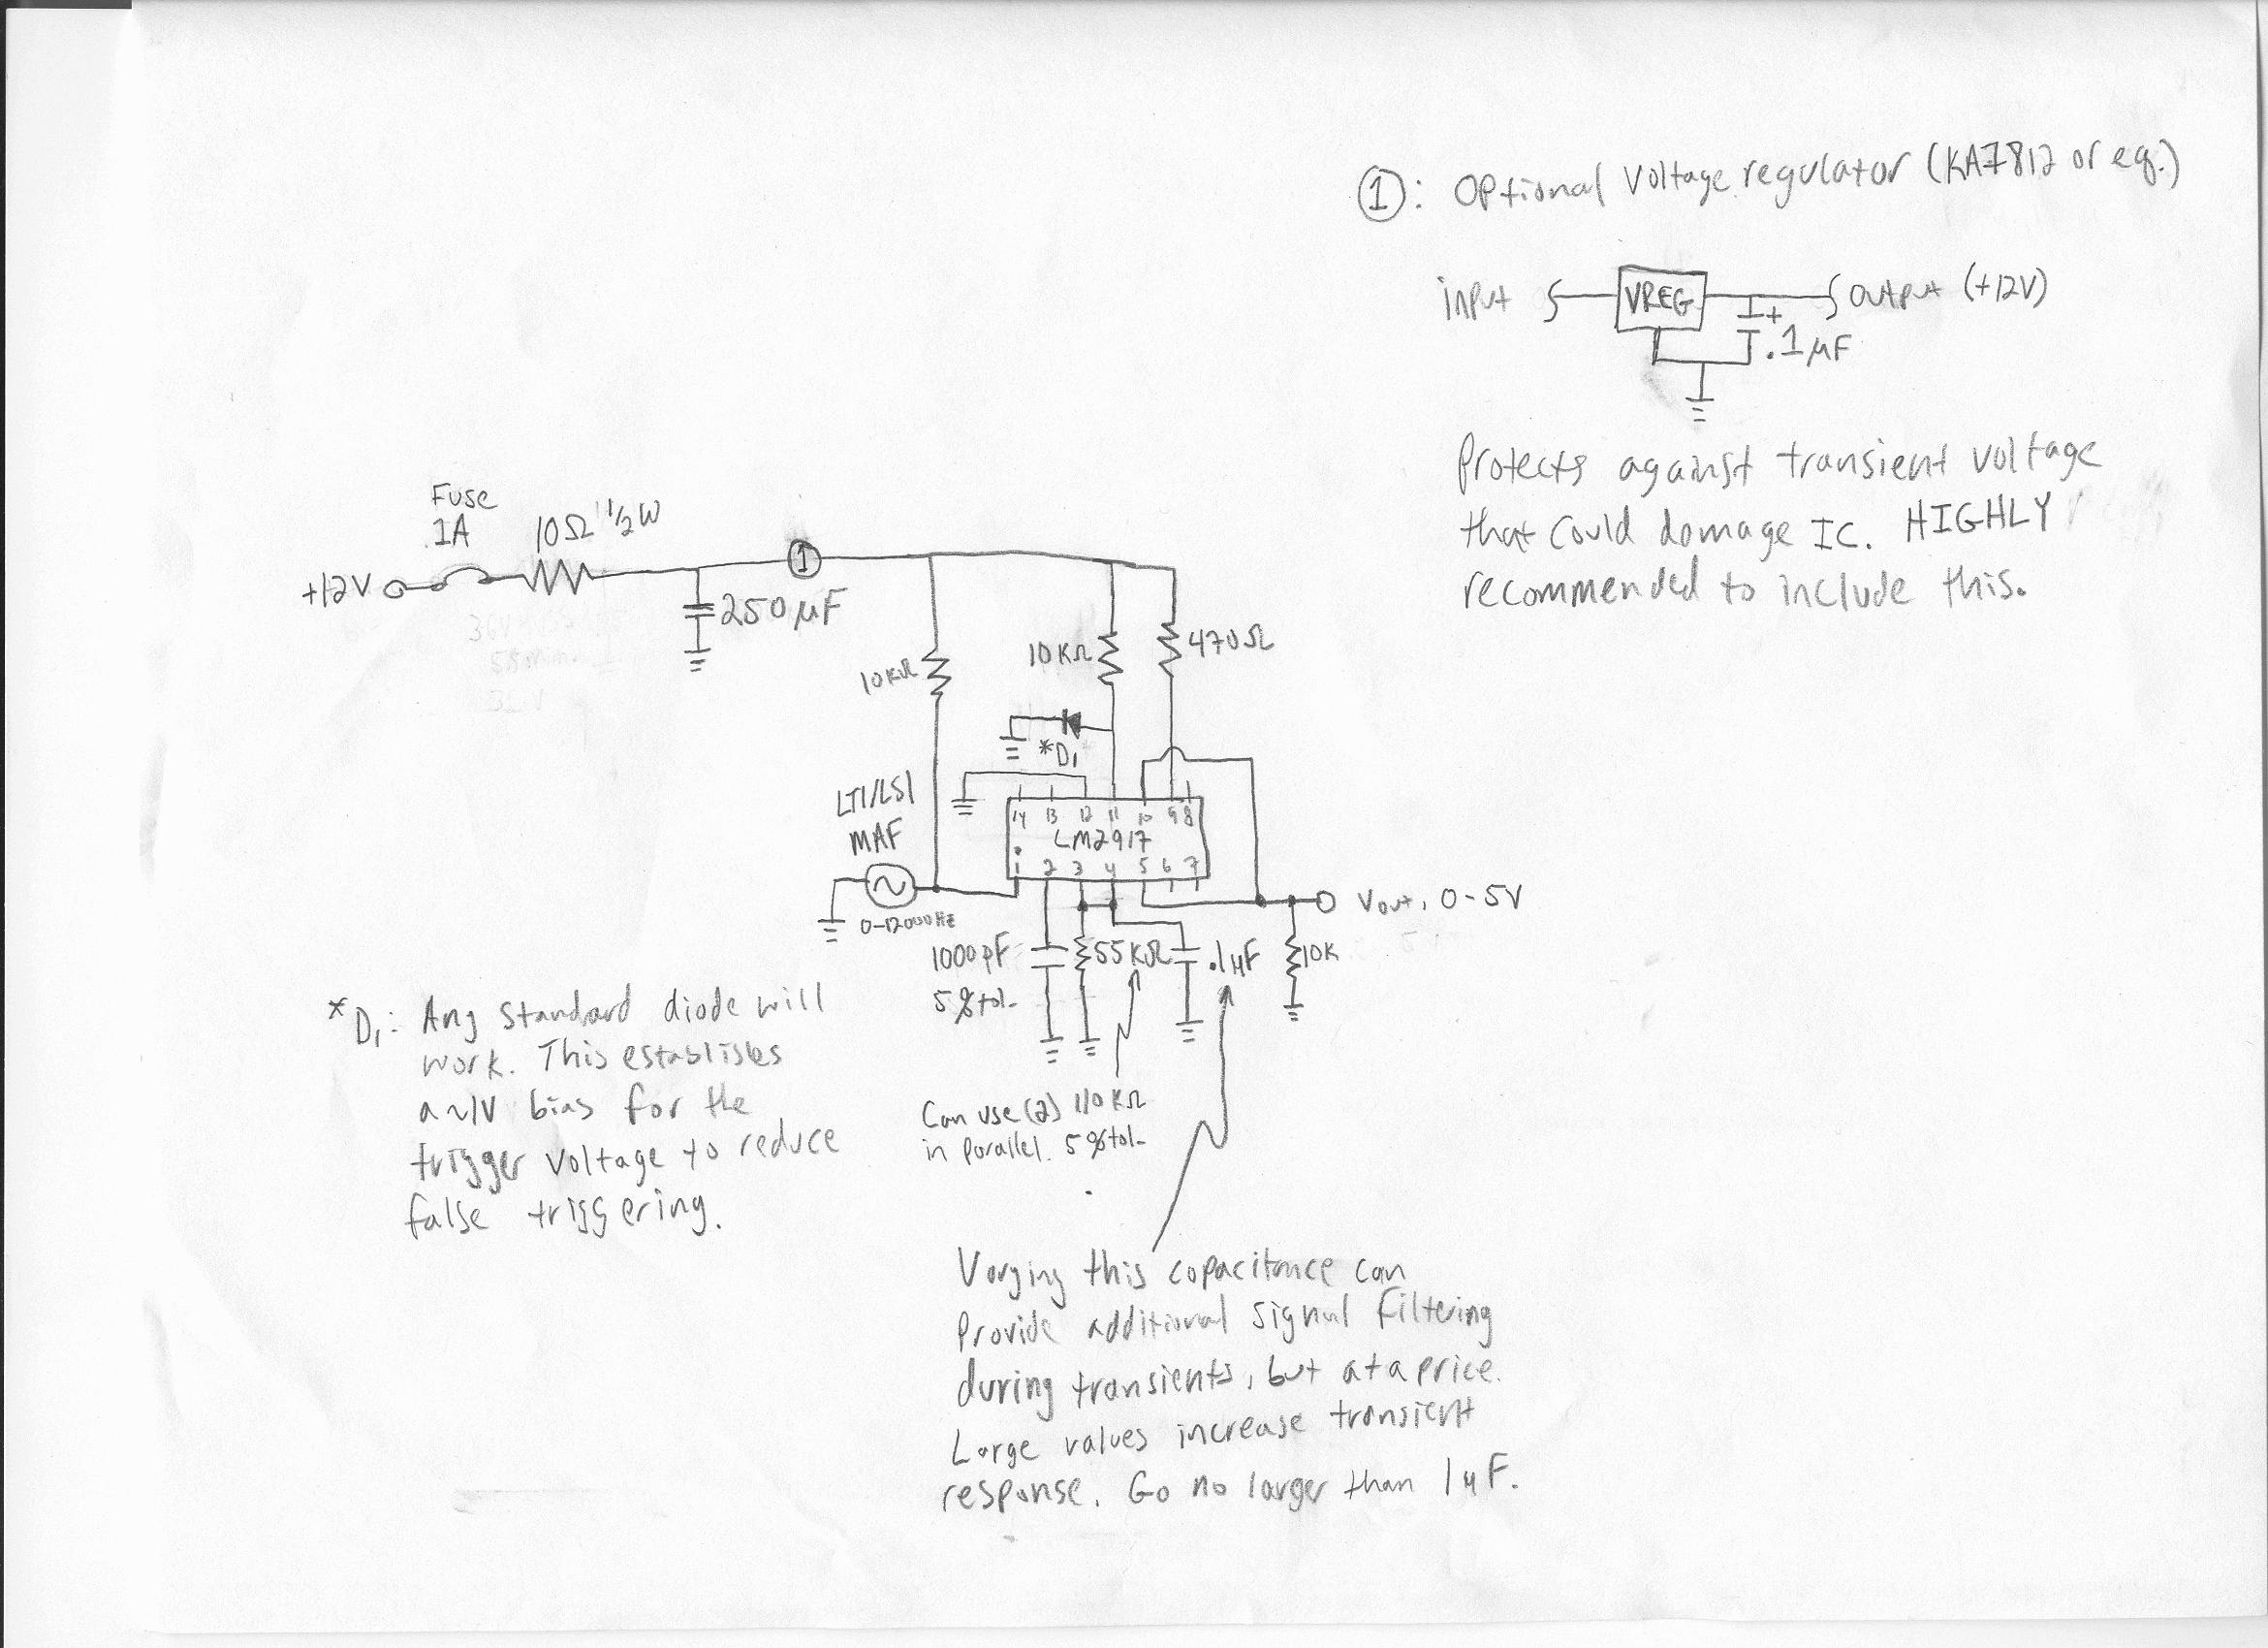 ①: Optional Voltage regulator (KA7812 or eq.)
input
VREG
output (+12V)
+
.1μF
Protects against transient voltage
that could damage IC. HIGHLY
recommended to include this.
Fuse
1A
10Ω 1/2W
+12V
①
250μF
10KΩ
10KΩ
470Ω
*D1
LT1/LS1
MAF
14 13 12 11 10 9 8
LM2917
1 2 3 4 5 6 7
0-12000Hz
Vout, 0-5V
1000pF
5% tol.
55KΩ
.1μF
10K
*D1: Any standard diode will
work. This establishes
a ~1V bias for the
trigger voltage to reduce
false triggering.
Can use (2) 110KΩ
in parallel. 5% tol.
Varying this capacitance can
provide additional signal filtering
during transients, but at a price.
Large values increase transient
response. Go no larger than 1μF.